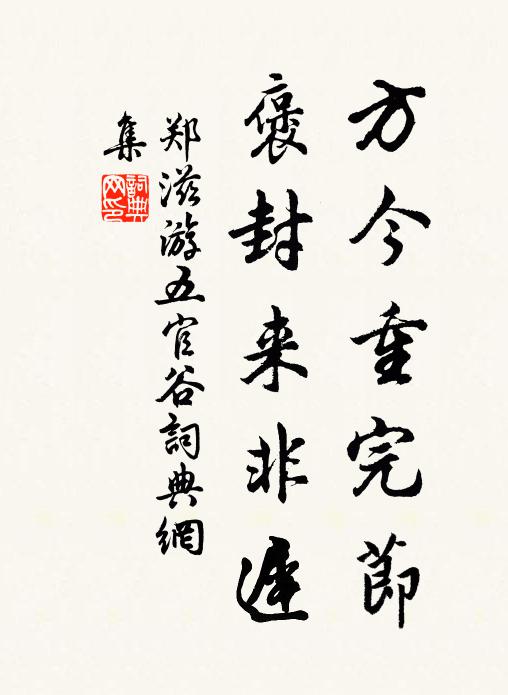 方今重完節
褒封来非遲
郑滋游五官谷詞典網
集
詞典网印